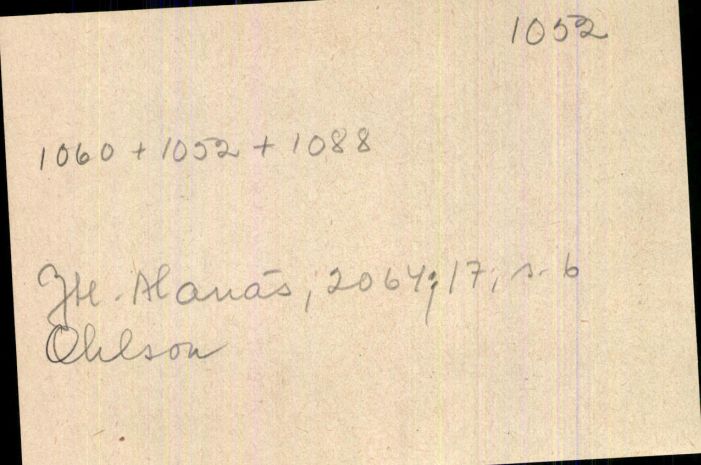 1052
1060 + 1052 + 1088
Jtl. Alanäs, 2064; 17, s. 6
Ohlson